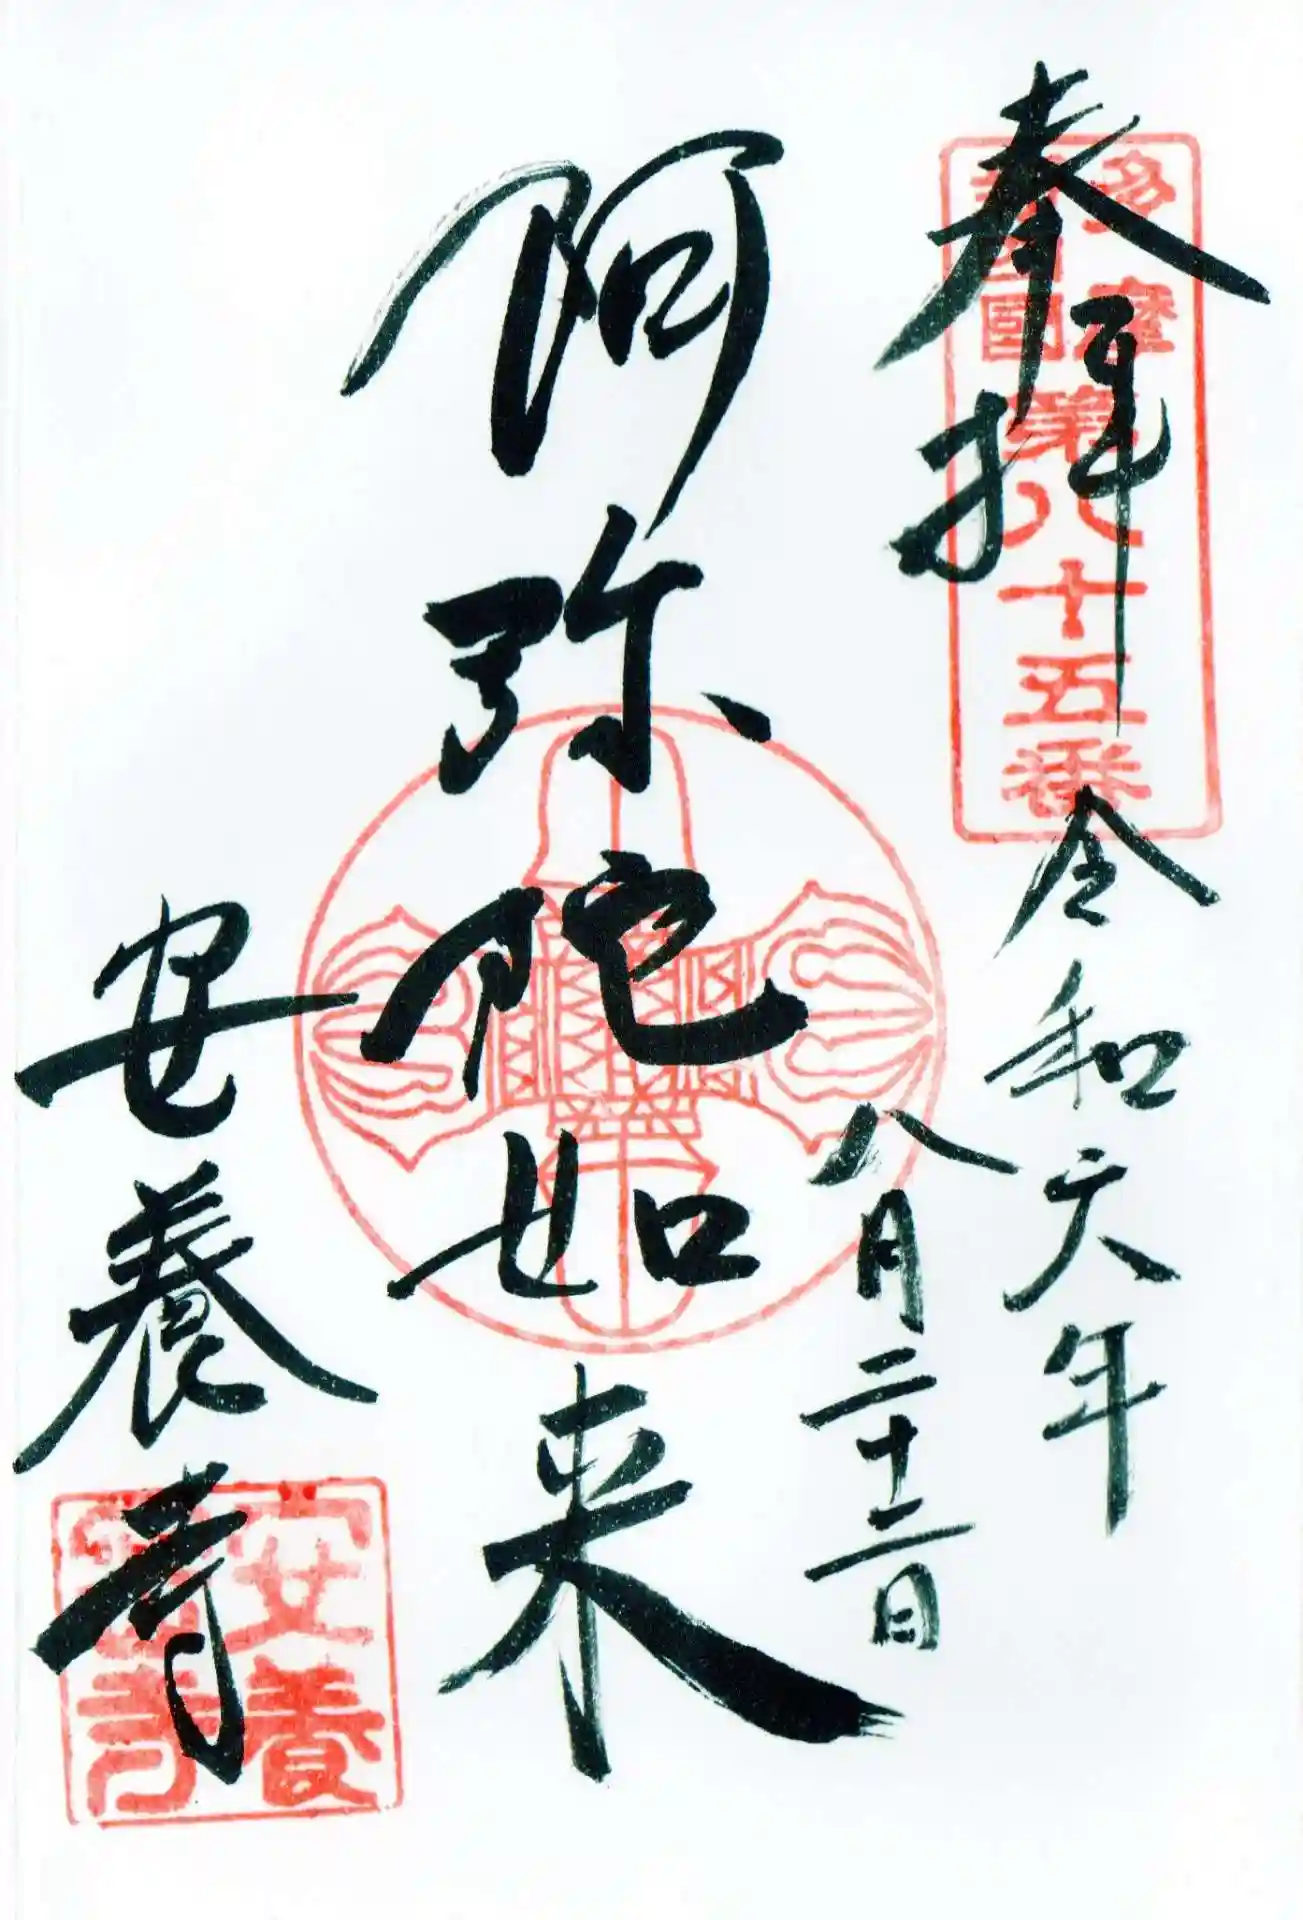 奉拝
多摩
新四國
第八十五番
令和六年
八月二十二日
阿弥陀如来
安養寺
安養
寺